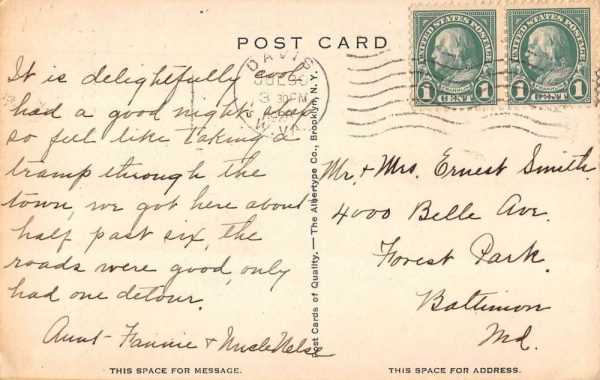 POST CARD
It is delightefully cool
had a good night's
so feel like taking a
tramp through the
town, we got here about
half past six, the
roads were good, only
had one detour.
Aunt Fannie & Uncle Nelse
DAVIS
3 30PM
W.VA.
UNITED STATES POSTAGE
FRANKLIN
1 CENT 1
UNITED STATES POSTAGE
FRANKLIN
1 CENT 1
Post Cards of Quality.—The Albertype Co., Brooklyn, N.Y.
Mr. & Mrs. Ernest Smith
4000 Belle Ave.
Forest Park.
Baltimon
Md.
THIS SPACE FOR MESSAGE.
THIS SPACE FOR ADDRESS.